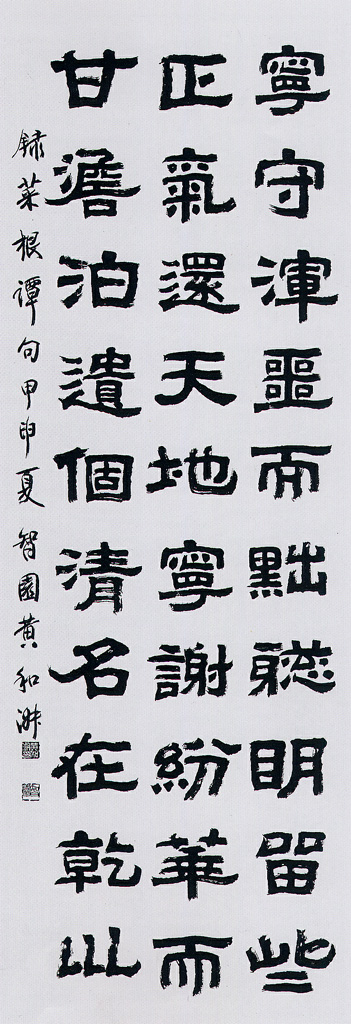 寧守渾噩而黜聰明留些
正氣還天地寧謝紛華而
甘澹泊遺個清名在乾巛
錄菜根譚句甲申夏智園黃和